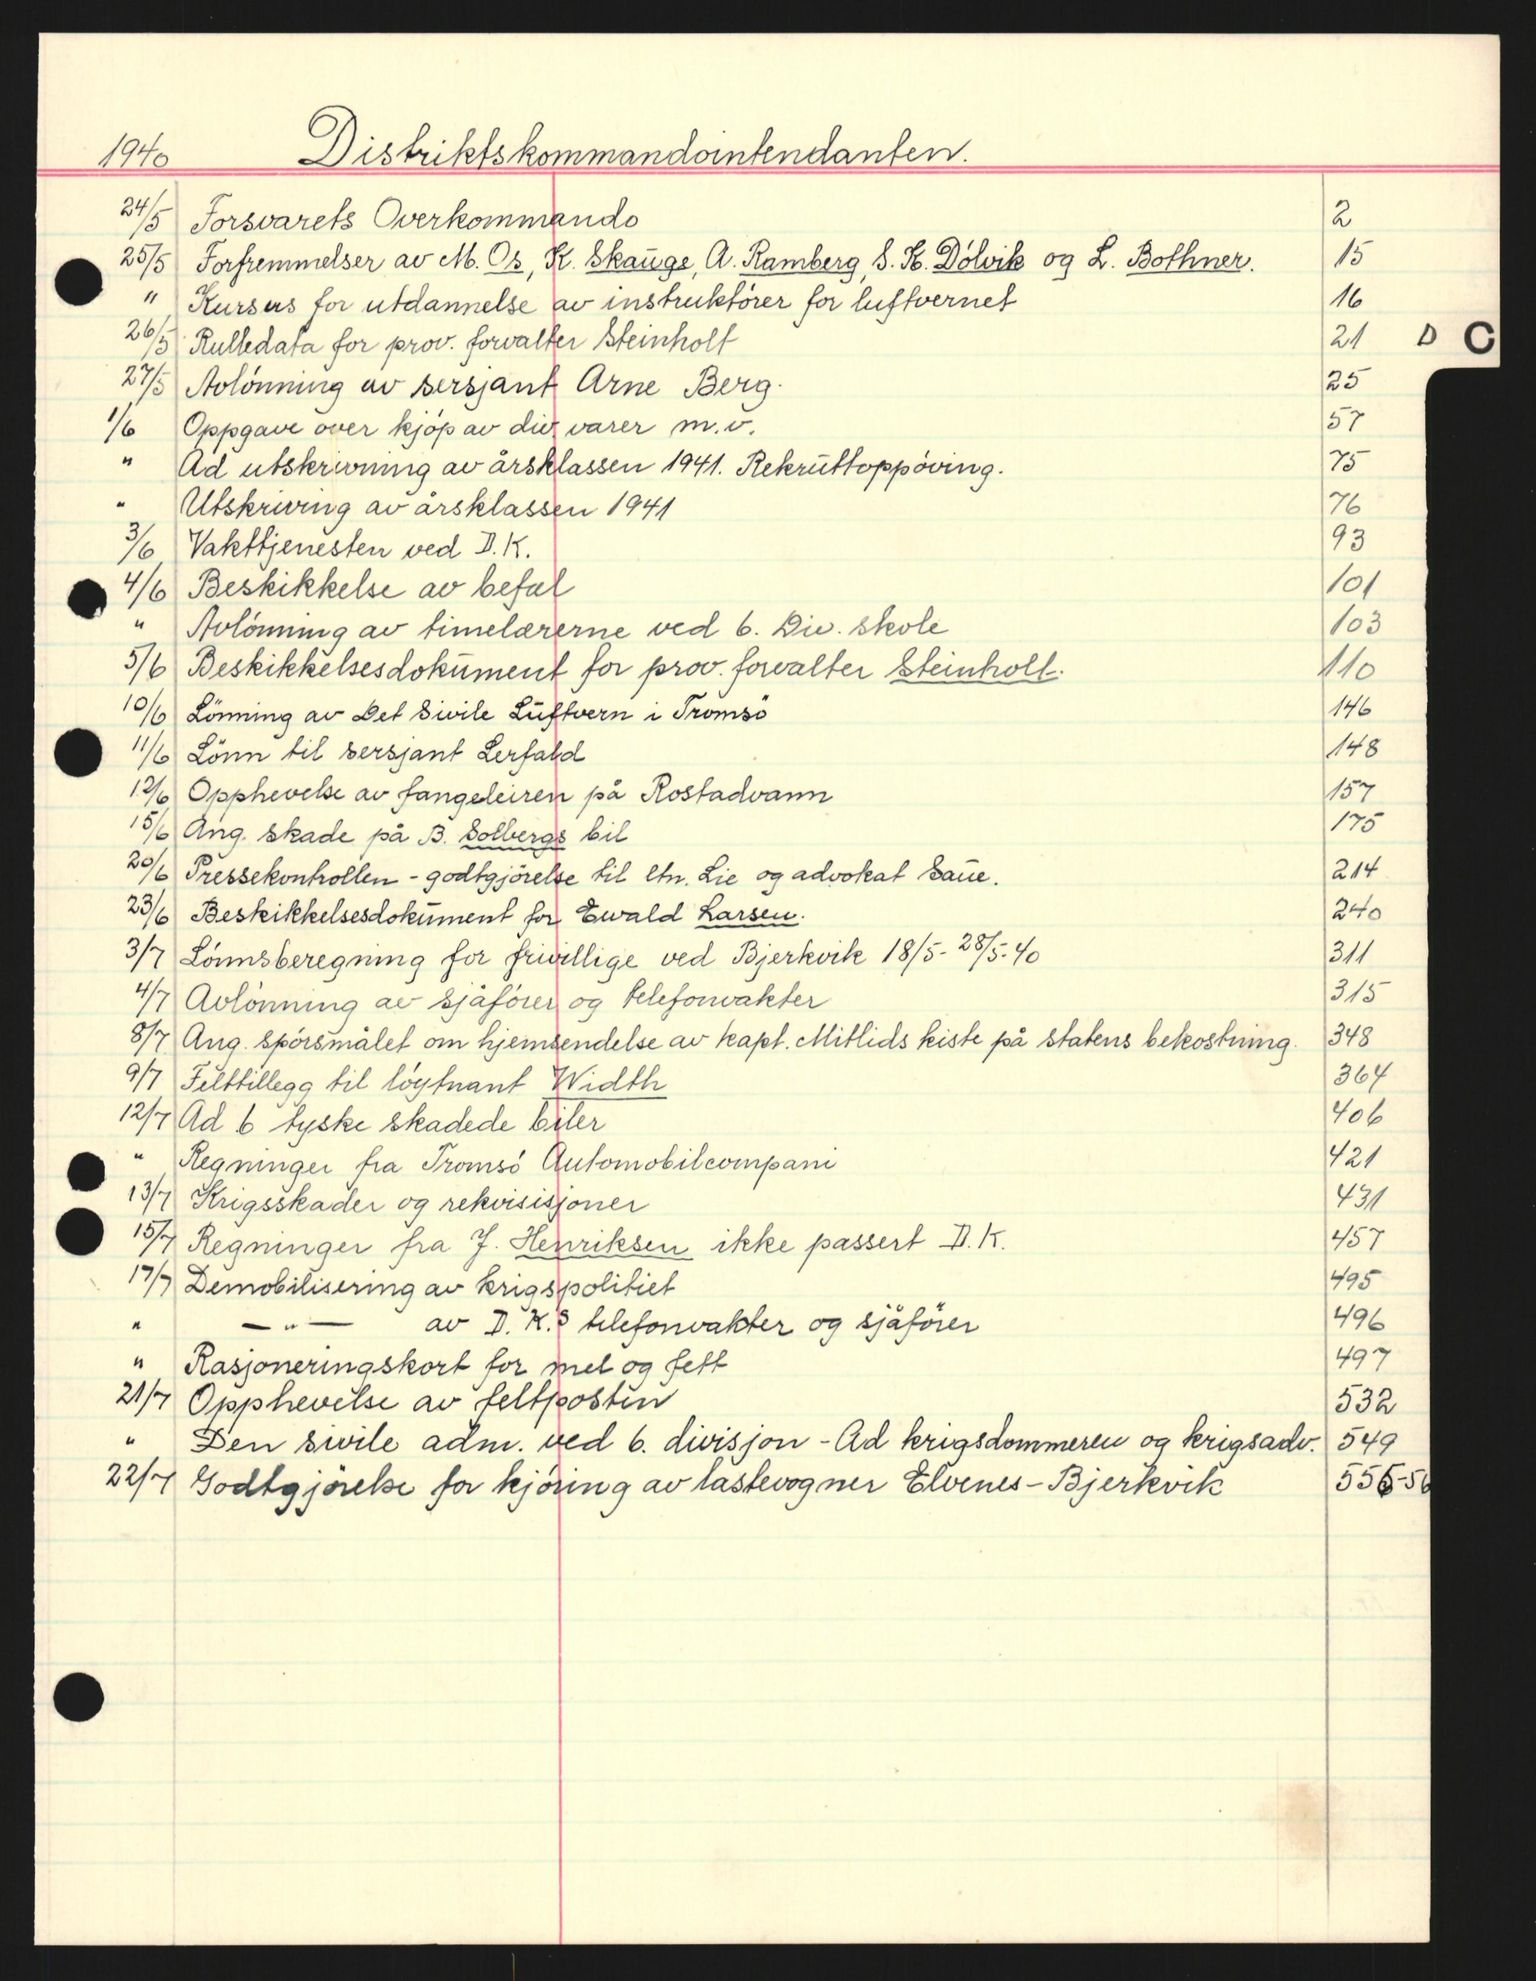 1940 Distriktskommandointendanten.
24/5 Forsvarets Overkommando 2
25/5 Forfremmelser av M. Os, K. Skauge, A. Ramberg, S. K. Dölvik og L. Bothner. 15
" Kursus for utdannelse av instruktörer for luftvernet 16
26/5 Rulledata for prov. forvalter Steinholt 21 D C
27/5 Avlönning av sersjant Arne Berg. 25
1/6 Oppgave over kjöp av div. varer m.v. 57
" Ad utskrivning av årsklassen 1941. Rekruttoppöving. 75
" Utskriving av årsklassen 1941 76
3/6 Vakttjenesten ved D.K. 93
4/6 Beskikkelse av befal 101
" Avlönning av timelærerne ved 6. Div. skole 103
5/6 Beskikkelsesdokument for prov. forvalter Steinholt. 110
10/6 Lönning av Det Sivile Luftvern i Tromsö 146
11/6 Lönn til sersjant Lerfald 148
12/6 Opphevelse av fangeleiren på Rostadvann 157
15/6 Ang. skade på B. Solbergs bil 175
20/6 Pressekontrollen - godtgjörelse til ltn. Lie og advokat Saue. 214
23/6 Beskikkelsesdokument for Ewald Larsen. 240
3/7 Lönnsberegning for frivillige ved Bjerkvik 18/5-28/5-40 311
4/7 Avlönning av sjåförer og telefonvakter 315
8/7 Ang. spörsmålet om hjemsendelse av kapt. Mitlids kiste på statens bekostning. 348
9/7 Felttillegg til löytnant Width 364
12/7 Ad 6 tyske skadede biler 406
" Regninger fra Tromsö Automobilcompani 421
13/7 Krigsskader og rekvisisjoner 431
15/7 Regninger fra J. Henriksen ikke passert D.K. 457
17/7 Demobilisering av krigspolitiet 495
" — " — av D.K.s telefonvakter og sjåförer 496
" Rasjoneringskort for mel og fett 497
21/7 Opphevelse av feltposten 532
" Den sivile adm. ved 6. divisjon - Ad krigsdommeren og krigsadv. 549
22/7 Godtgjörelse for kjöring av lastevogner Elvenes - Bjerkvik 555-56